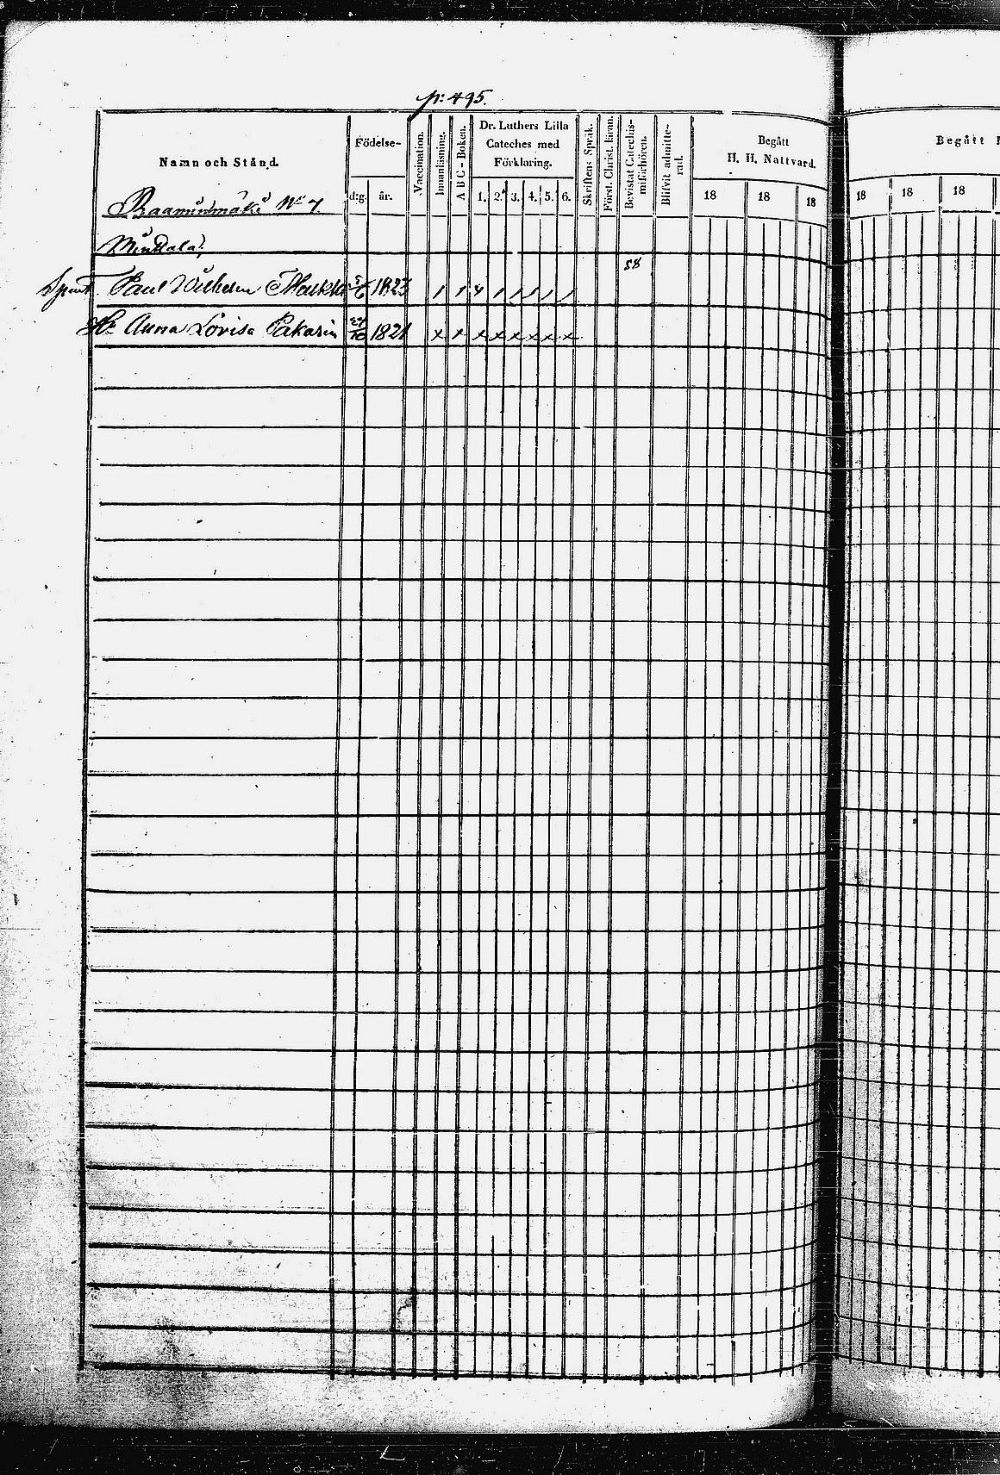 p: 495.
Namn och Stånd.
Födelse-
d:g. år.
Vaccination.
Innanläsning.
ABC-Boken.
Dr. Luthers Lilla
Cateches med
Förklaring.
1. 2. 3. 4. 5. 6.
Skriftens Språk.
Först. Christ. kvan.
Bevistat Catechis-
miförhören.
Blifvit admitte-
rad.
Begått
H. H. Nattvard.
18 18 18
Begått
18 18 18
No 7.
88
Paul Wilhelm 1823
Anna Lovisa Pakarin 1821